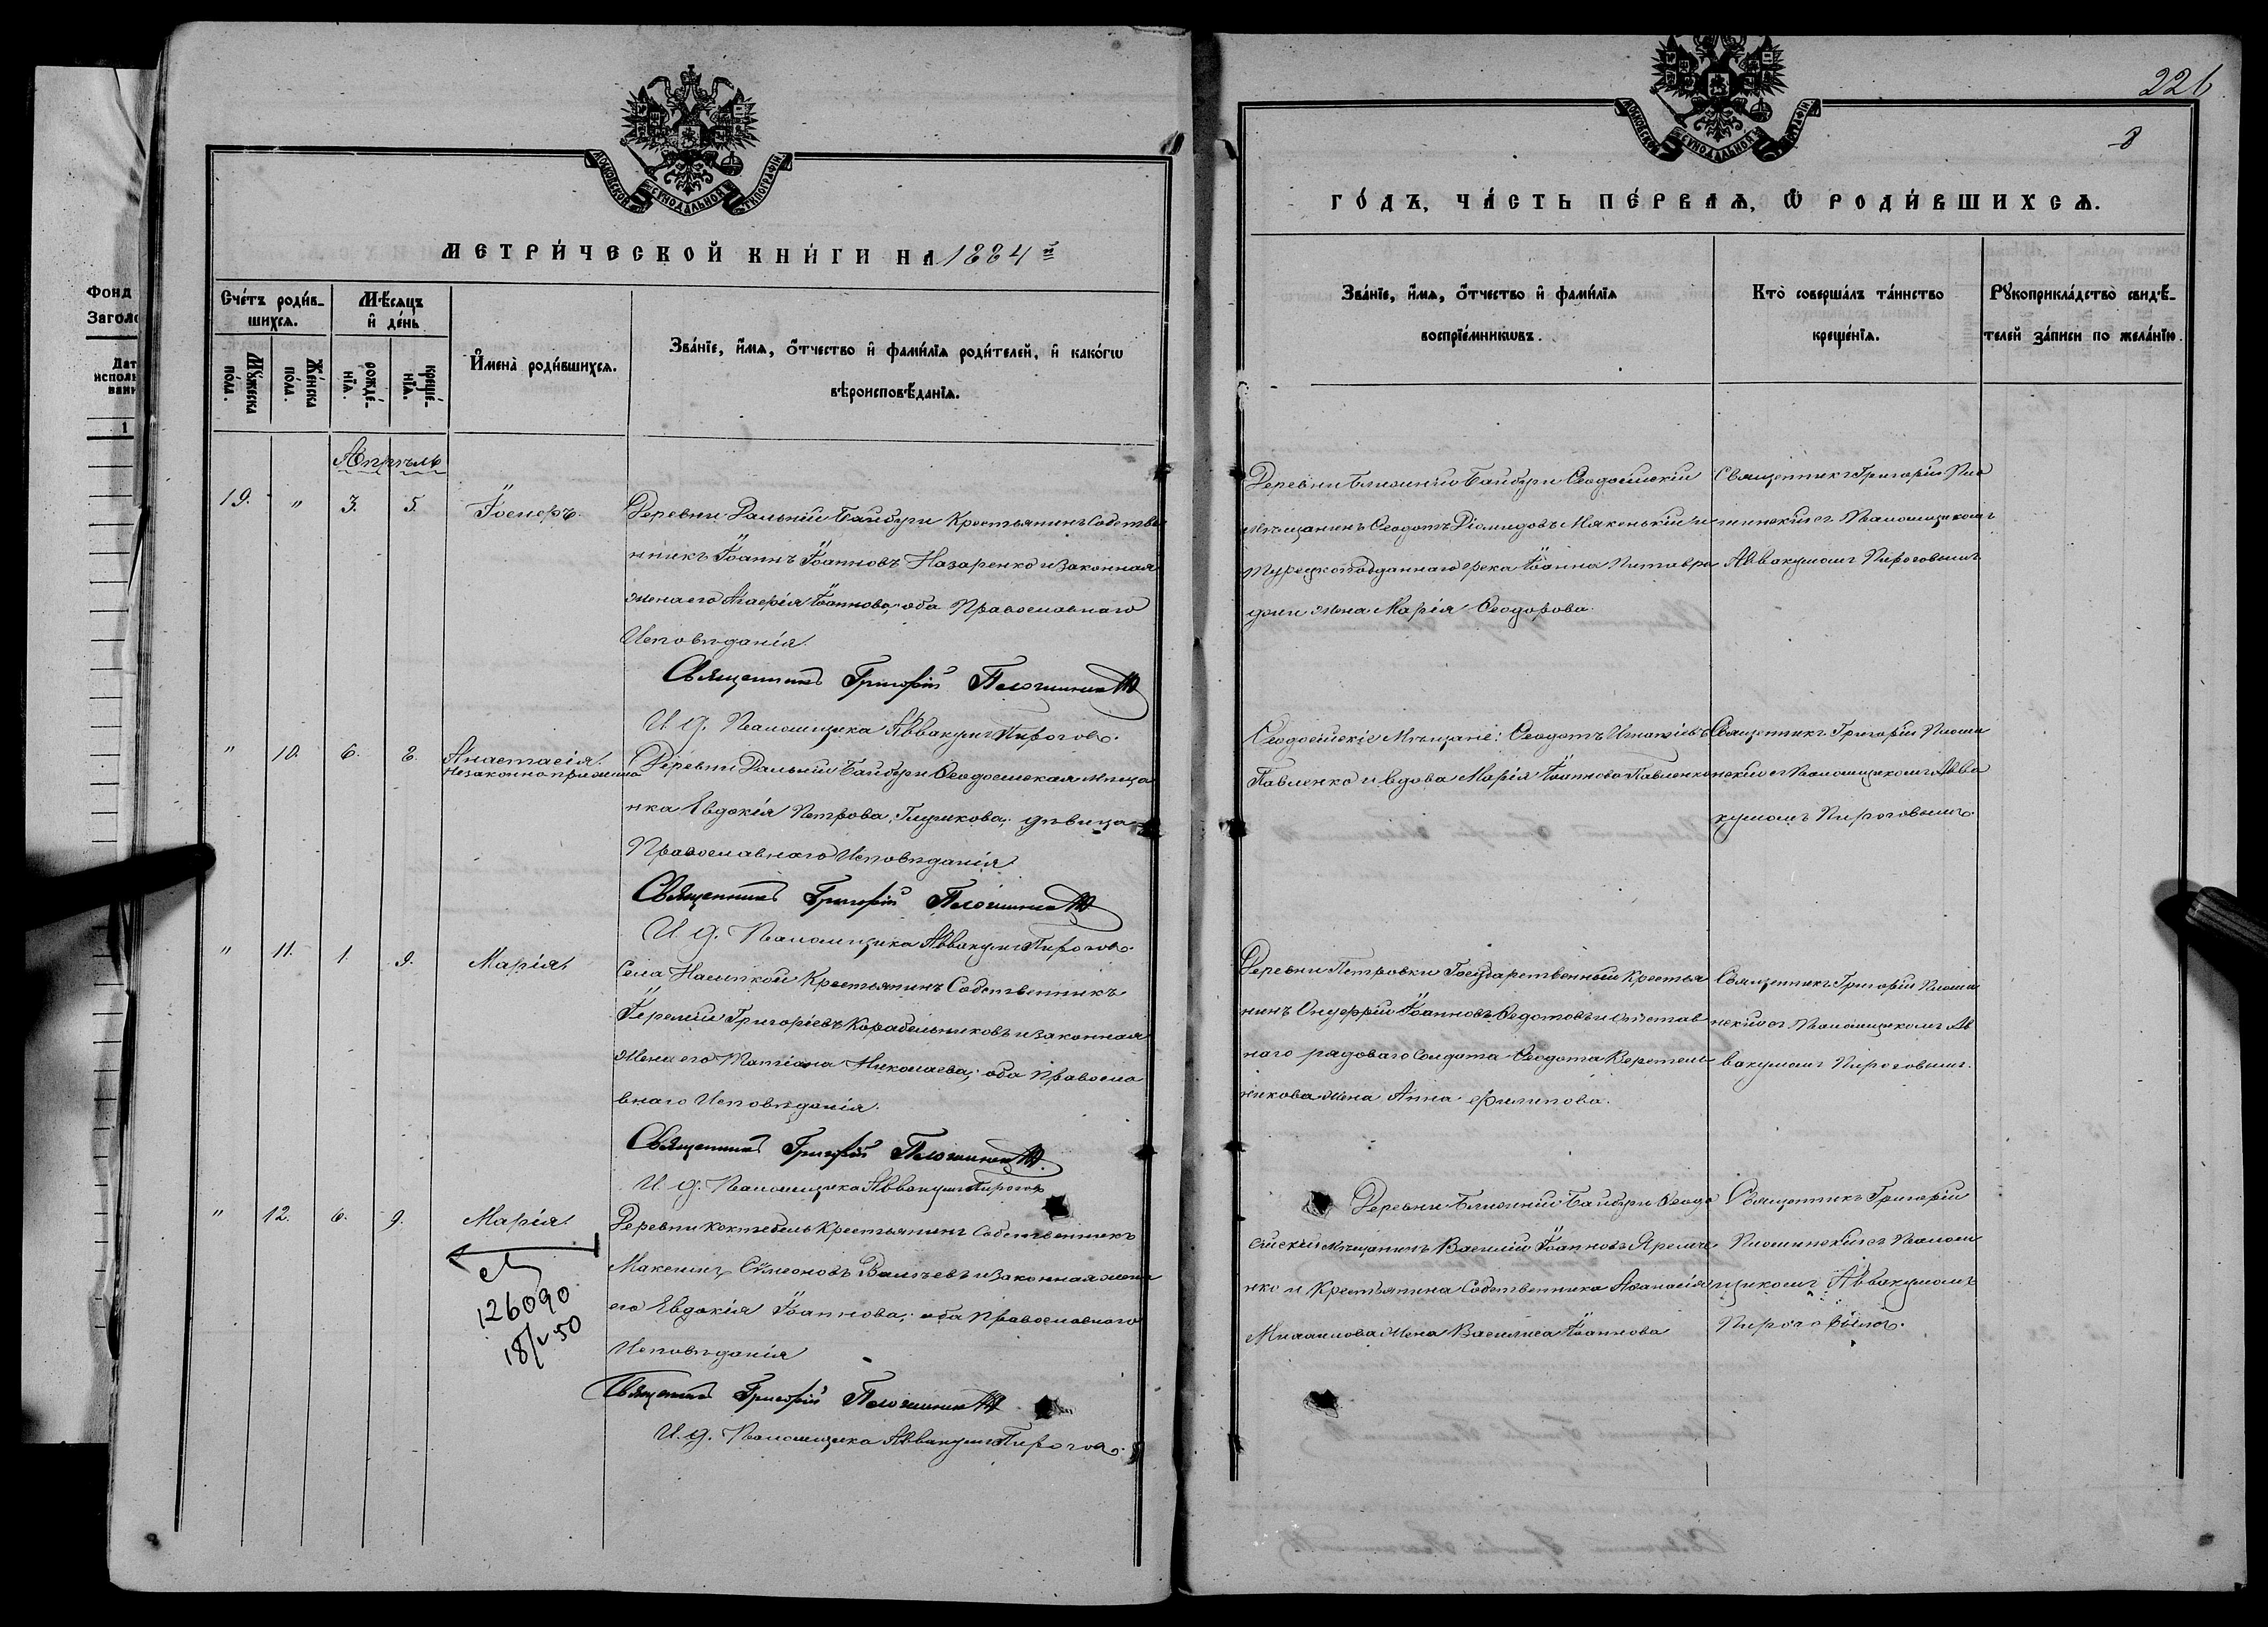 Фонд
Заголо
Дат
исполь
вани
1
МОСКОВСКОЙ СѴНОДАЛЬНОЙ ТИПОГРАФІИ
МЕТРИ́ЧЕСКОЙ КНИ́ГИ НА 1884й
Сче́тъ роди́в-
шихся.
Мѣ́сяцъ
и҆ де́нь
Мꙋ́жеска
по́ла.
Же́нска
по́ла.
рожде́-
нїѧ.
креще́-
нїѧ.
И҆мена̀ роди́вшихсѧ.
Зва́нїе, и҆́мѧ, ѻ҆́тчество и҆ фами́лїѧ роди́телей, и҆ како́гѡ
вѣроисповѣ́данїѧ.
Апрѣль
19. " 3. 5. Іосифъ.
Деревни Дальнiй Байбуги Крестьянинъ Собстве
нникъ Іоаннъ Іоанновъ Назаренко и законная
жена его Іоаннова; оба Православнаго
Исповѣданія.
Священникъ Григорій
И. д. Псаломщика Аввакумъ Пироговъ.
" 10. 6. 8. Анастасія.
Незаконнорожденна
Деревни Дальнiй Байбуги Ѳеодосійская мѣща
нка Евдокія Петрова; дѣвица
Православнаго Исповѣданія.
Священникъ Григорій
И. д. Псаломщика Аввакумъ Пироговъ.
" 11. 1. 9. Марія.
Села Насыпкой Крестьянинъ Собственникъ
Іеремій Григоріевъ Корабельниковъ и законная
жена его Татіана Николаева; оба Правосла
внаго Исповѣданія.
Священникъ Григорій
И. д. Псаломщика Аввакумъ Пироговъ
" 12. 6. 9. Марія.
Деревни Коктебель Крестьянинъ Собственникъ
Максимъ Сѵмеоновъ и законная жена
его Евдокія Іоаннова; оба Православнаго
Исповѣданія
Священникъ Григорій
И. д. Псаломщика Аввакумъ Пироговъ.
126090
18/V 50
226
8
МОСКОВСКОЙ СѴНОДАЛЬНОЙ ТИПОГРАФІИ
ГО́ДЪ, ЧА́СТЬ ПЕ́РВАѦ, Ѡ҆ РОДИ́ВШИХСѦ.
Зва́нїе, и҆́мѧ, ѻ҆́тчество и҆ фами́лїѧ
воспрїе́мникѡвъ.
Кто̀ соверша́лъ та́инство
креще́нїѧ.
Рꙋкоприкла́дство свидѣ́-
телей за́писи по жела́нїю.
Деревни Ближнiй Байбуги Ѳеодосійскій
мѣщанинъ Ѳеодотъ Діомидовъ Мякенькій и
Турецкоподданнаго грека Іоанна
жена Марія Ѳеодорова.
Священникъ Григорій Пло
шинскій съ Псаломщикомъ
Аввакумомъ Пироговымъ
Ѳеодосійскіе Мѣщане: Ѳеодотъ Игнатіевъ
Павленко и вдова Марія Іоаннова Павленко
Священникъ Григорій Плоши
нскій съ Псаломщикомъ Авва
кумомъ Пироговымъ.
Деревни Петровки Государственный Крестья
нинъ Онуфрій Іоанновъ Ѳедотовъ и отстав
наго рядоваго Солдата Ѳеодота Веретель
никова жена Анна Филипова.
Священникъ Григорій Плоши
нскій съ Псаломщикомъ Ав
вакумомъ Пироговымъ.
Деревни Ближнiй Байбуги Ѳеодо
сійскій мѣщанинъ Василій Іоанновъ Яреме
нко и Крестьянина Собственника Аѳанасія
жена Василиса Іоаннова
Священникъ Григорій
Плошинскій съ Псалом
щикомъ Аввакумомъ
Пироговымъ.